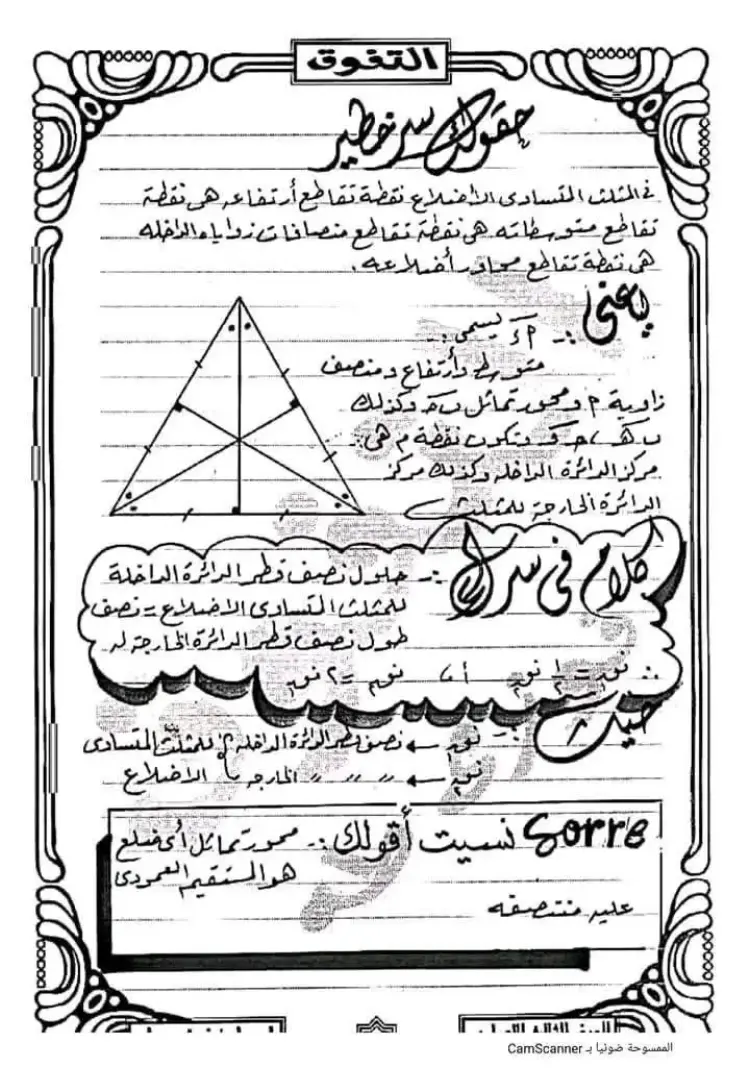 التفوق
حقولك سر خطير
فى المثلث المتساوى الأضلاع نقطة تقاطع أرتفاعاته هى نقطة
تقاطع متوسطاته هى نقطة تقاطع منصفات زواياه الداخله
هى نقطة تقاطع محاور أضلاعه.
يعنى :- يسمى :-
متوسط وأرتفاع ومنصف
زاوية م ومحور تماثل ب ح وكذلك
ب هـ ، ح و وتكون نقطة م هى :-
مركز الدائرة الداخله وكذلك مركز
الدائرة الخارجة للمثلث
كلام فى سرك :- طول نصف قطر الدائرة الداخلة
للمثلث المتساوى الاضلاع = نصف
طول نصف قطر الدائرة الخارجة له
حيث :-
نصف قطر الدائرة الداخله للمثلث المتساوى
〃 〃 〃 الخارجه الاضلاع
Sorre نسيت أقولك :- محور تماثل أى ضلع
هو المستقيم العمودى
عليه من منتصفه
الممسوحة ضوئيا بـ CamScanner